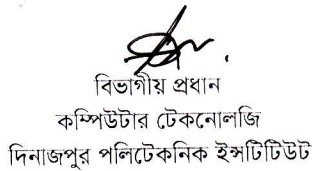 বিভাগীয় প্রধান
কম্পিউটার টেকনোলজি
দিনাজপুর পলিটেকনিক ইন্সটিটিউট